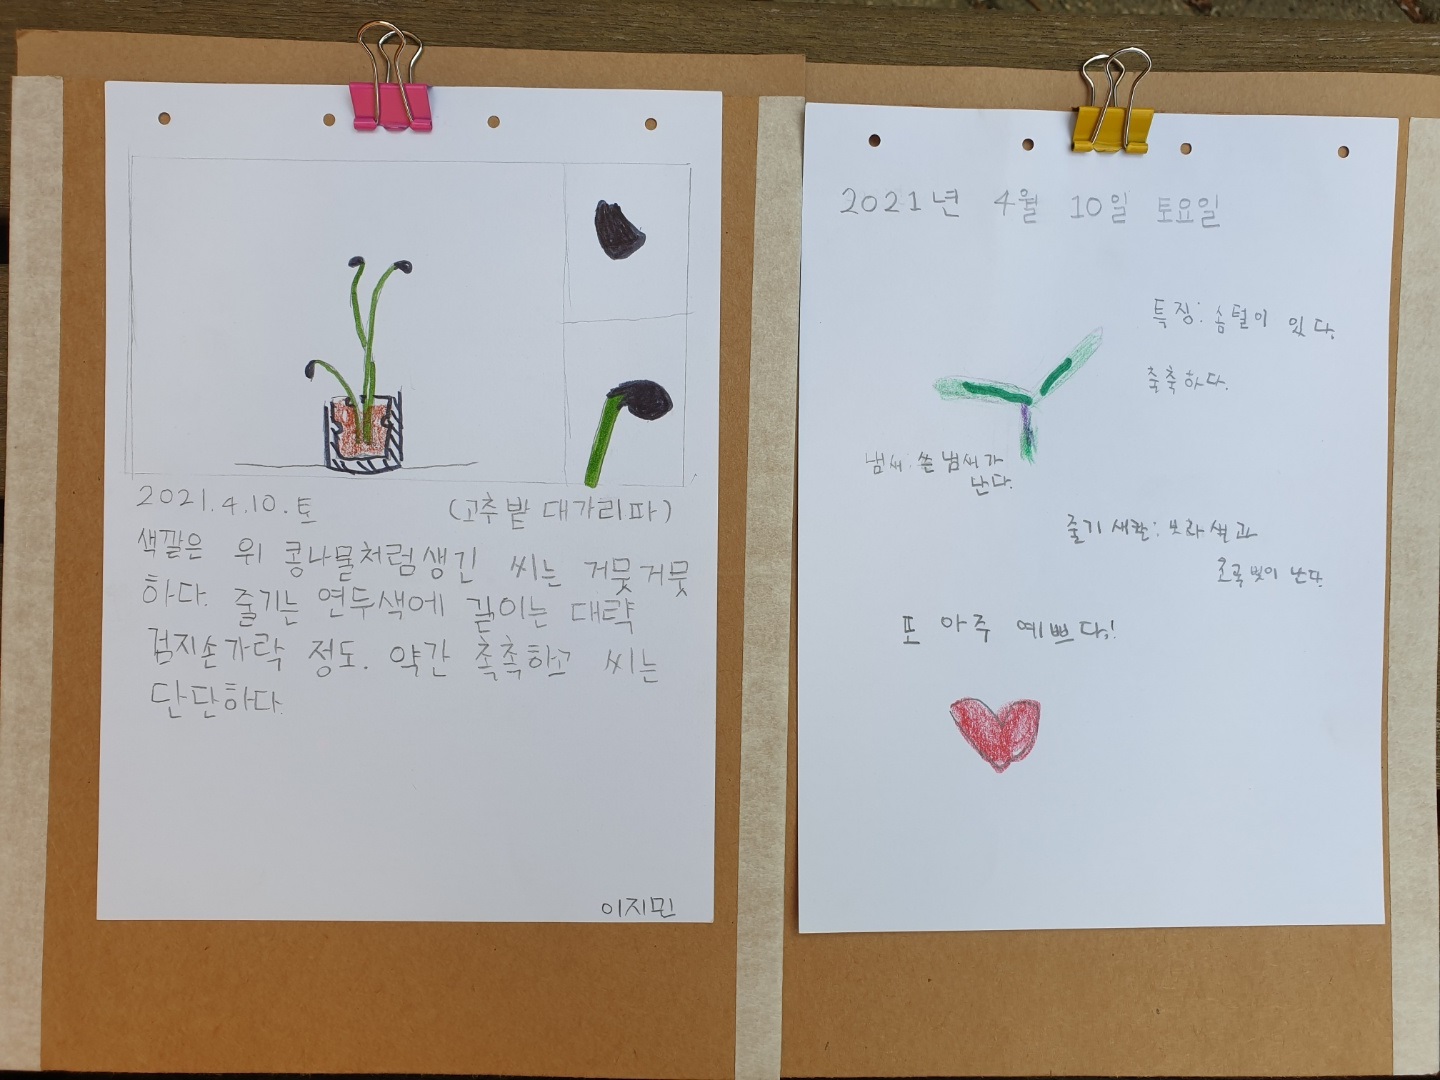 2021.4.10.토
(고추밭 대가리파)
색깔은 위 콩나물처럼생긴 씨는 거뭇거뭇
하다. 줄기는 연두색에 길이는 대략
검지손가락 정도. 약간 촉촉하고 씨는
단단하다.
이지민
2021년 4월 10일 토요일
특징: 솜털이 있다.
축축하다.
냄새: 쓴 냄새가
난다.
줄기 새깔: 보라색과
초록빛이 난다.
또 아주 예쁘다!